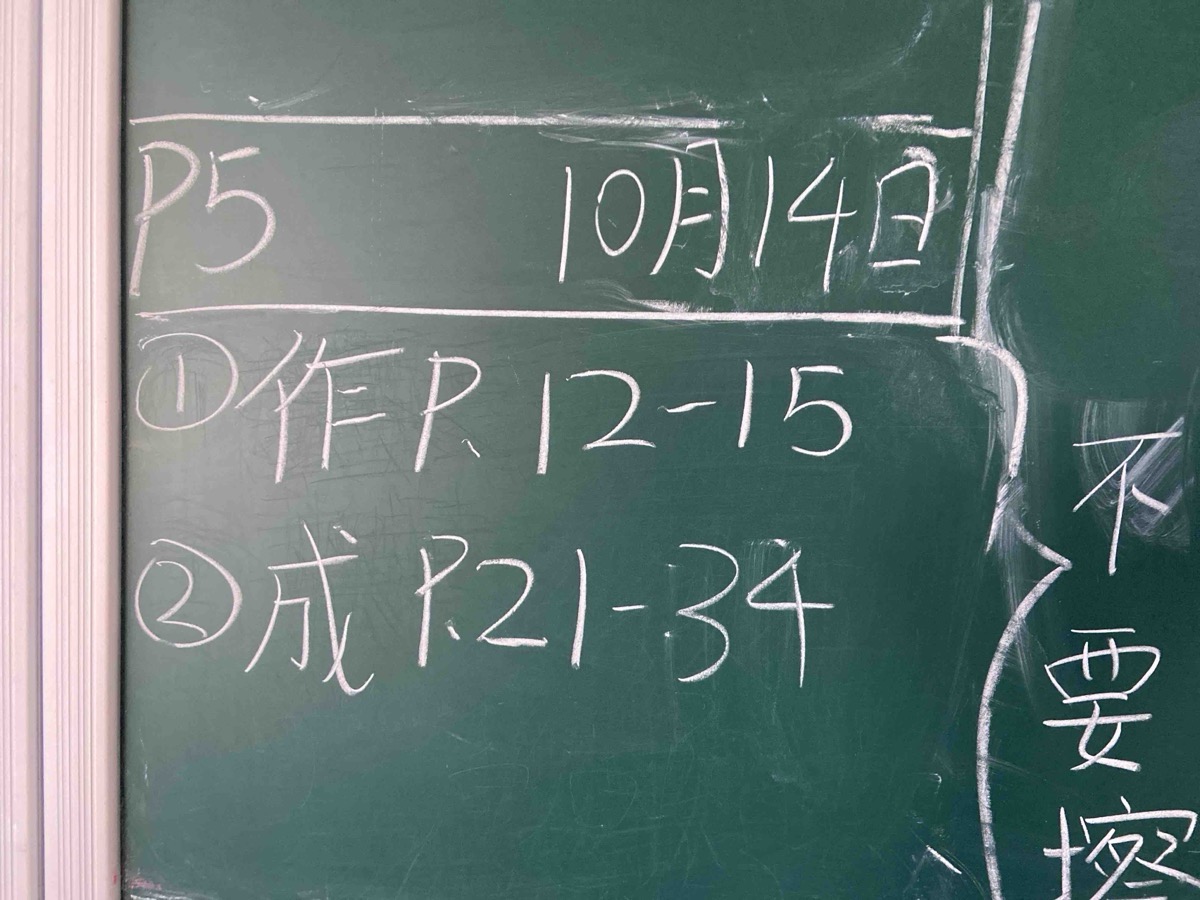 P5 10月14日
①作P.12-15
②成P.21-34
不要擦